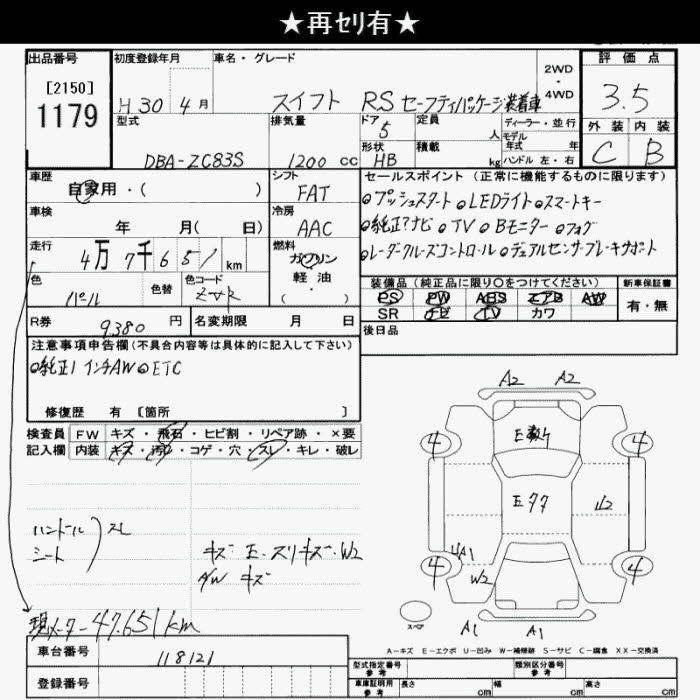 ★再セリ有★
出品番号 初度登録年月 車名・グレード 2WD・4WD 評価点
[2150]
1179
H30 4月 スイフト RS セーフティパッケージ装着車 3.5
型式 排気量 ドア 定員 ディーラー・並行 外装 内装
5 人 モデル年式 年
DBA-ZC83S 1200cc 形状 HB 積載 kg ハンドル 左・右 C B
車歴 シフト セールスポイント(正常に機能するものに限ります)
自家用・( ) FAT プッシュスタート LEDライト スマートキー
車検 冷房 純正ナビ TV Bモニター フォグ
年 月(日) AAC レーダークルーズコントロール デュアルセンサーブレーキサポート
走行 燃料
4万7千651km ガソリン
色 色替 色コード 軽油・( )
パール ZVR
装備品(純正品に限り○をつけてください) 新車保証書
PS PW ABS エアB AW 有・無
SR ナビ TV カワ
R券 9380円 名変期限 月 日 後日品
注意事項申告欄(不具合内容等は具体的に記入して下さい)
純正 インチAW ETC
修復歴 有 [箇所 ]
検査員 FW キズ・飛石・ヒビ割・リペア跡・×要
記入欄 内装 キズ・汚レ・コゲ・穴・スレ・キレ・破レ
A2 A2
4 4
E77 W2
ハンドル スレ
シート
キズ・E・スリキズ・W2
AW キズ
W2
4 4
A1 A1
スペア
現メーター47.651km
A-キズ E-エクボ U-凹み W-補修跡 S-サビ C-腐食 XX-交換済
車台番号 118121
登録番号
型式指定番号 参考 類別区分番号 参考
車庫証明用 参考 長さ cm 幅 cm 高さ cm